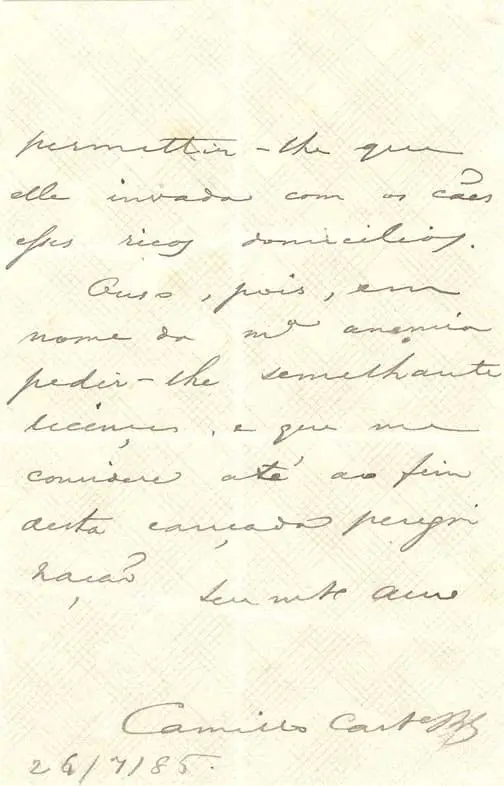 permettir-lhe que
elle invada com os cães
esses ricos domicilios.
Ouso, pois, em
nome da mª anemia
pedir-lhe semelhante
licença, e que me
considere até ao fim
desta cançada peregri
nação
seu mto amo
Camillo Castº Brº
26/7/85.